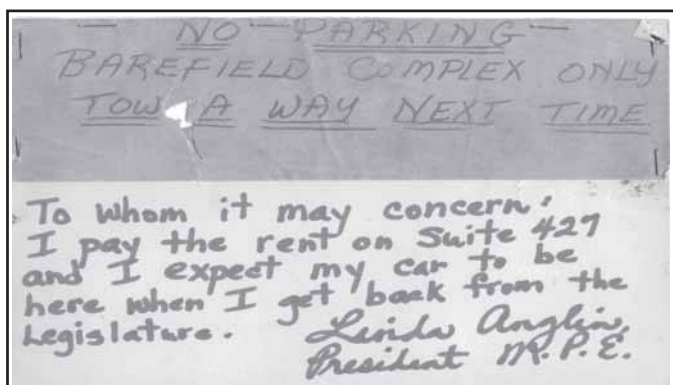 — NO — PARKING —
BAREFIELD COMPLEX ONLY
TOW A WAY NEXT TIME
To whom it may concern:
I pay the rent on Suite 427
and I expect my car to be
here when I get back from the
Legislature. Linda Anglin,
President M.P.E.